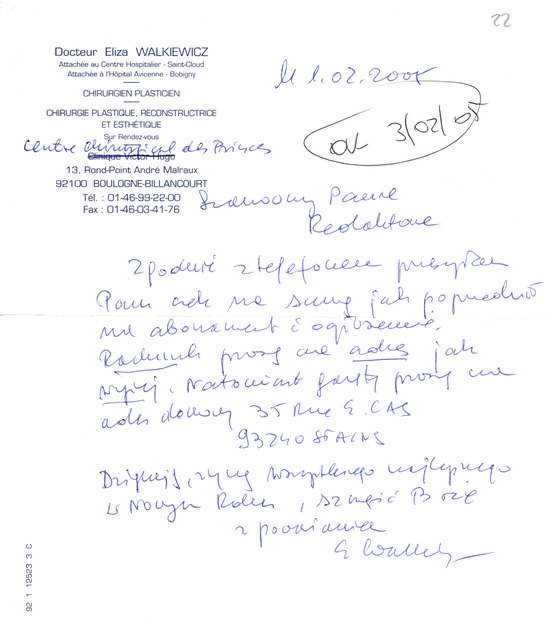 22
Docteur Eliza WALKIEWICZ
Attachée au Centre Hospitalier - Saint-Cloud
Attachée à l'Hôpital Avicenne - Bobigny
CHIRURGIEN PLASTICIEN
CHIRURGIE PLASTIQUE, RECONSTRUCTRICE
ET ESTHÉTIQUE
Sur Rendez-vous
Centre Chirurgical des Princes
Clinique Victor Hugo
13, Rond-Point André Malraux
92100 BOULOGNE-BILLANCOURT
Tél. : 01-46-99-22-00
Fax : 01-46-03-41-76
1.02.2005
ok 3/02/05
Szanowny Panie
Redaktorze
Zgodnie z telefonem
Panu czek na sumę jak poprzednio
na abonament i ogłoszenie.
Rachunek proszę na adres jak
wyżej. Natomiast gazetę proszę na
adres domowy 35 Rue G. CAS
93240 STAINS
Dziękuję, życzę wszystkiego najlepszego
w Nowym Roku, Szczęść Boże
z poważaniem
92 1 12523 3 C